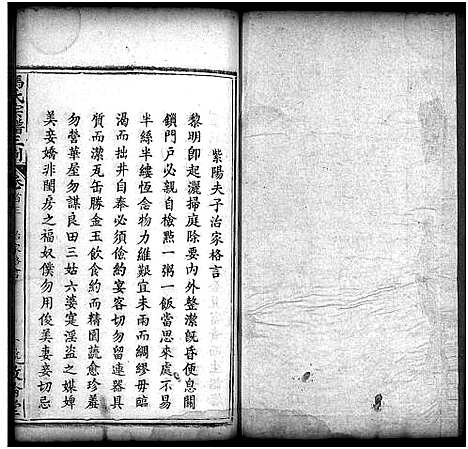 紫陽夫子治家格言
黎明卽起灑掃庭除要內外整潔旣昏便息關
鎖門戶必親自檢點一粥一飯當思來處不易
半絲半縷恆念物力維艱宜未雨而綢繆毋臨
渴而掘井自奉必須儉約宴客切勿留連器具
質而潔瓦缶勝金玉飲食約而精園蔬愈珍羞
勿營華屋勿謀良田三姑六婆寔淫盜之媒婢
美妾嬌非閨房之福奴僕勿用俊美妻妾切忌
氏宗譜 卷首 治家格言